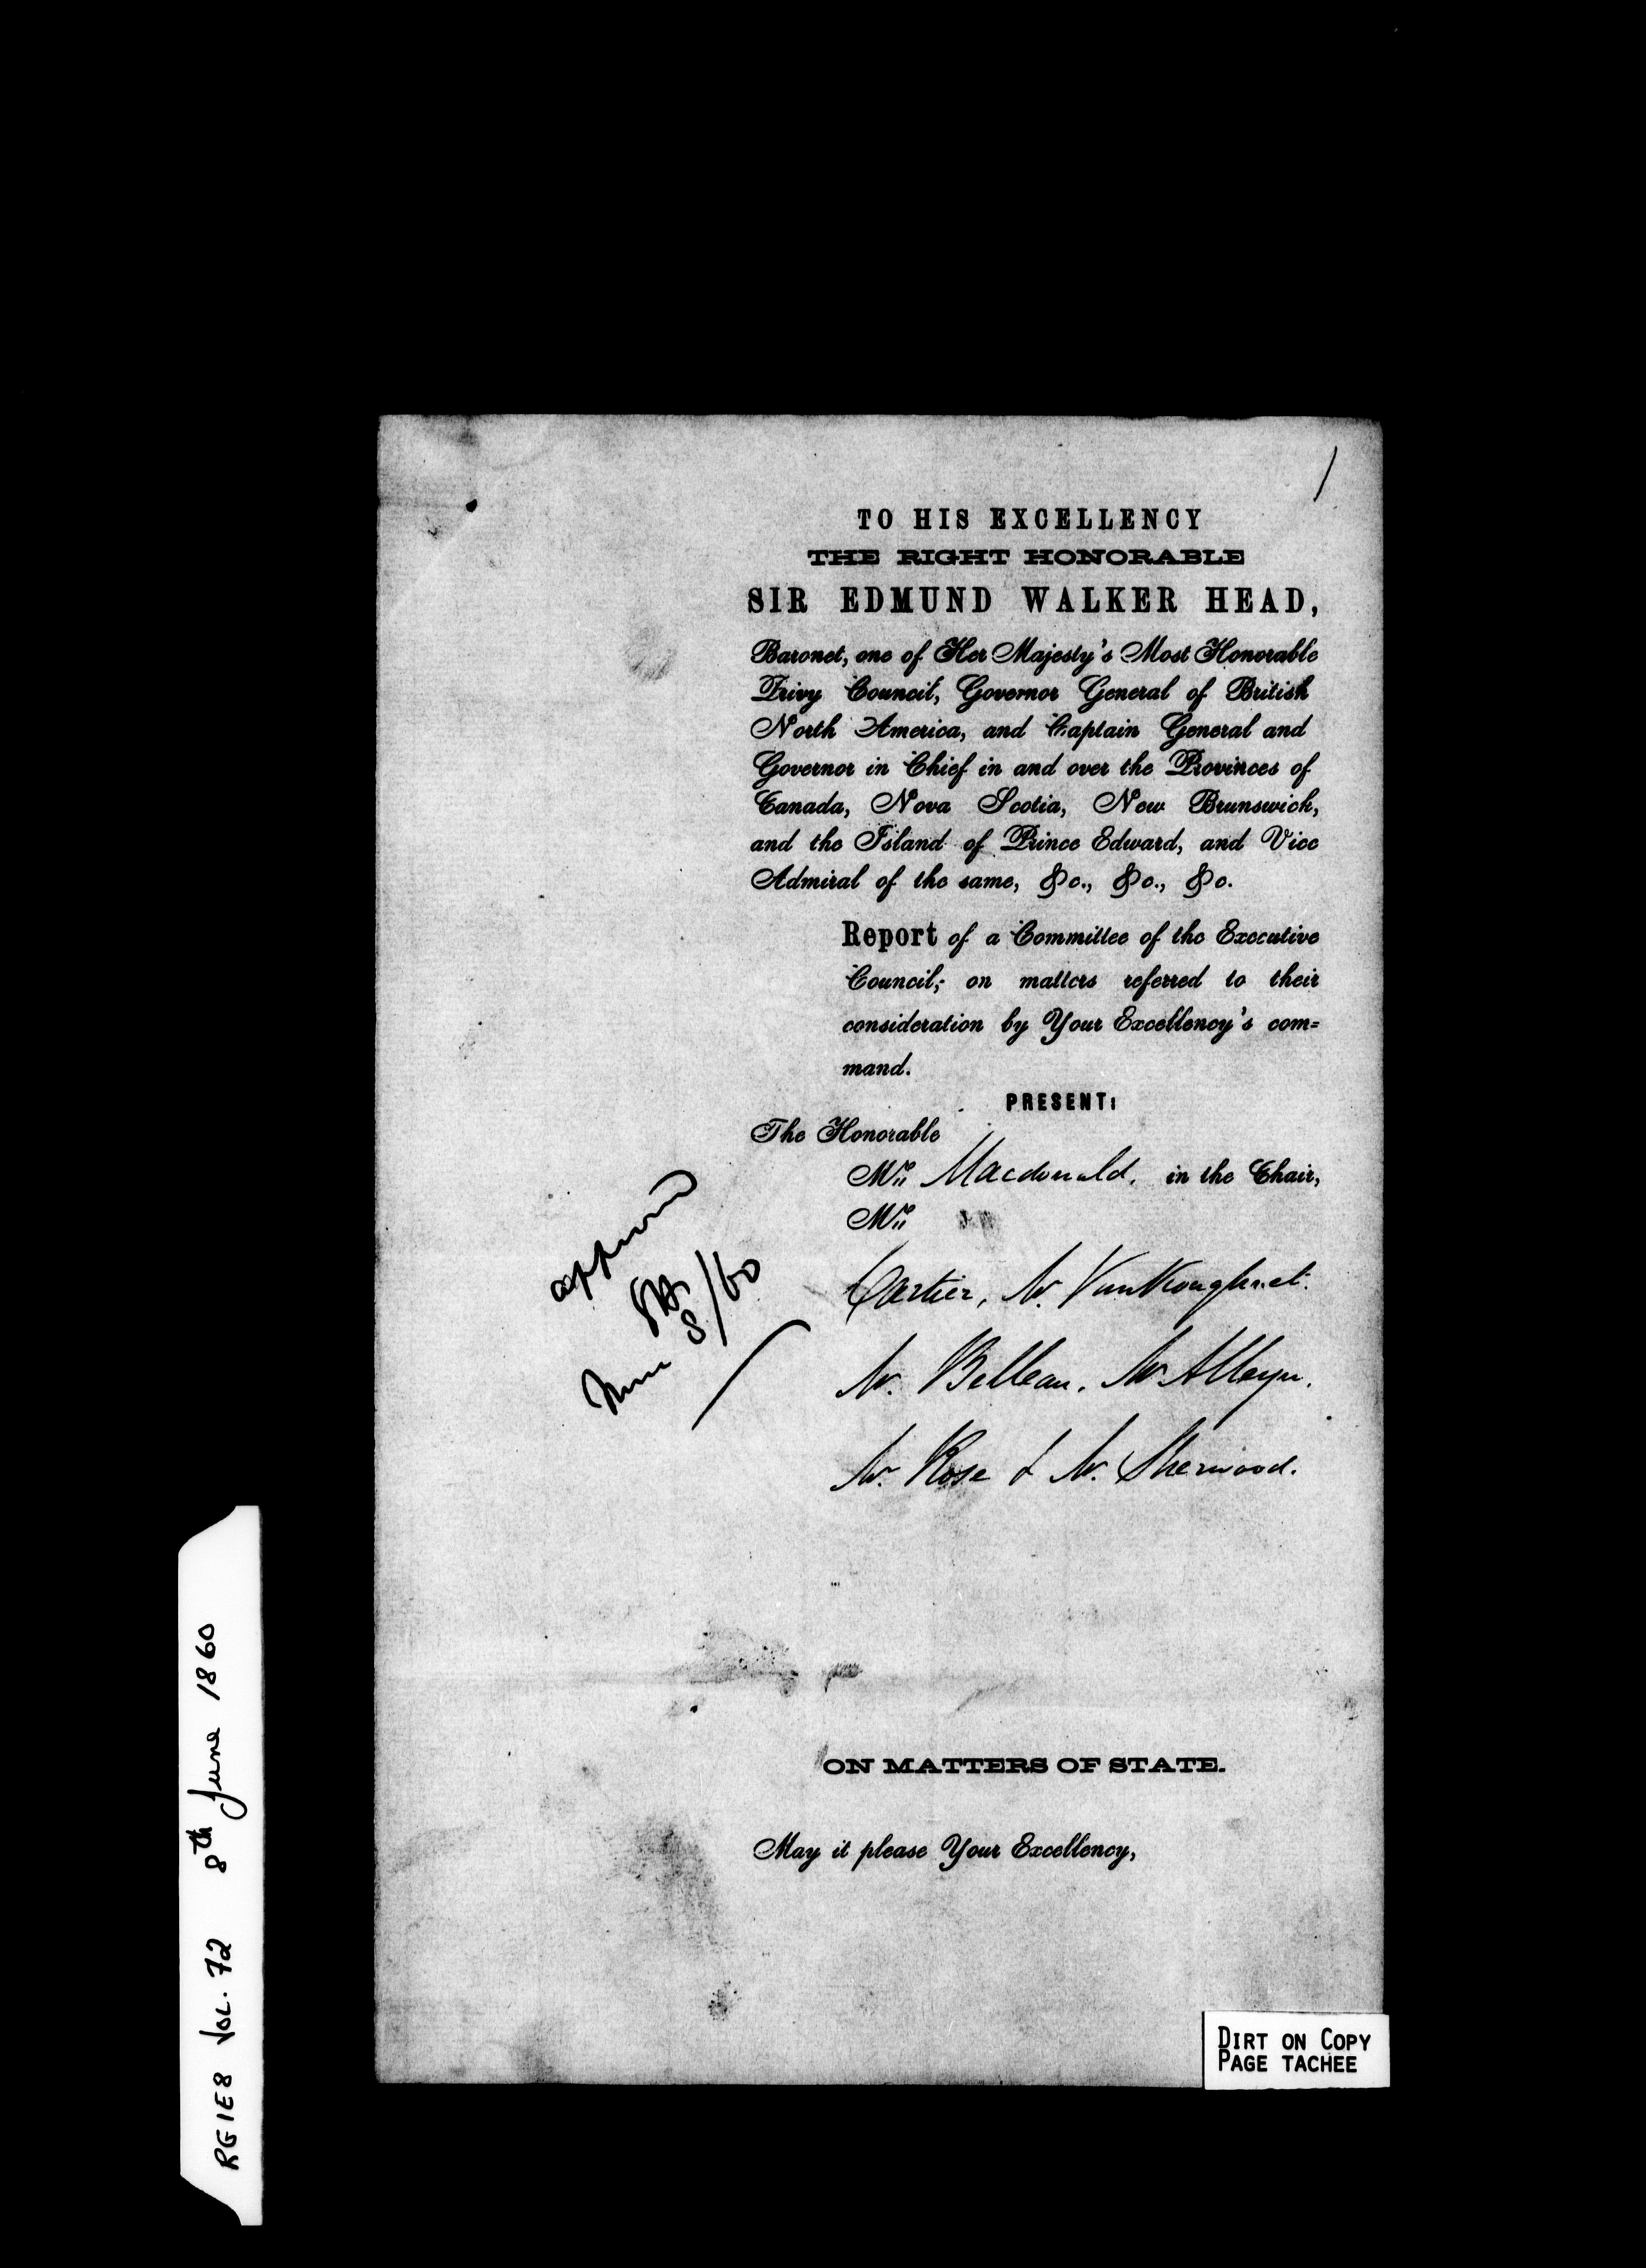 /
TO HIS EXCELLENCY
THE RIGHT HONORABLE
SIR EDMUND WALKER HEAD,
Baronet, one of Her Majesty's Most Honorable
Privy Council, Governor General of British
North America, and Captain General and
Governor in Chief in and over the Provinces of
Canada, Nova Scotia, New Brunswick,
and the Island of Prince Edward, and Vice
Admiral of the same, &c., &c., &c.
Report of a Committee of the Executive
Council; on matters referred to their
consideration by Your Excellency's com=
mand.
PRESENT:
The Honorable
Mr. Macdonald, in the Chair,
Mr.
Cartier, Mr. VanKoughnet.
Mr. Belleau. Mr Alleyn.
Mr. Rose & Mr. Sherwood.
approved
June 8/60
ON MATTERS OF STATE.
May it please Your Excellency,
DIRT ON COPY
PAGE TACHEE
RG1E8 VOL. 72 8th June 1860